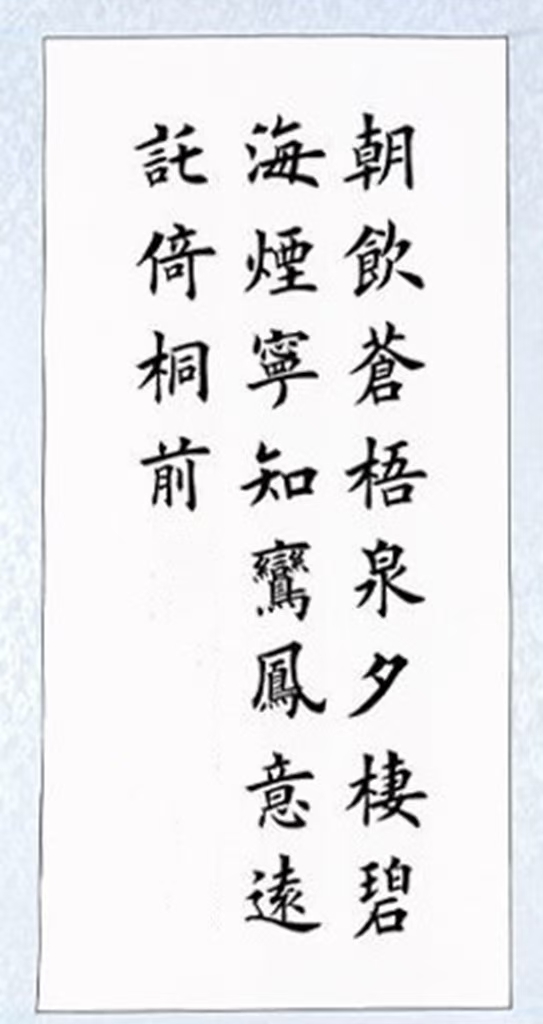 朝飲蒼梧泉夕棲碧
海煙寧知鸞鳳意遠
託倚桐前